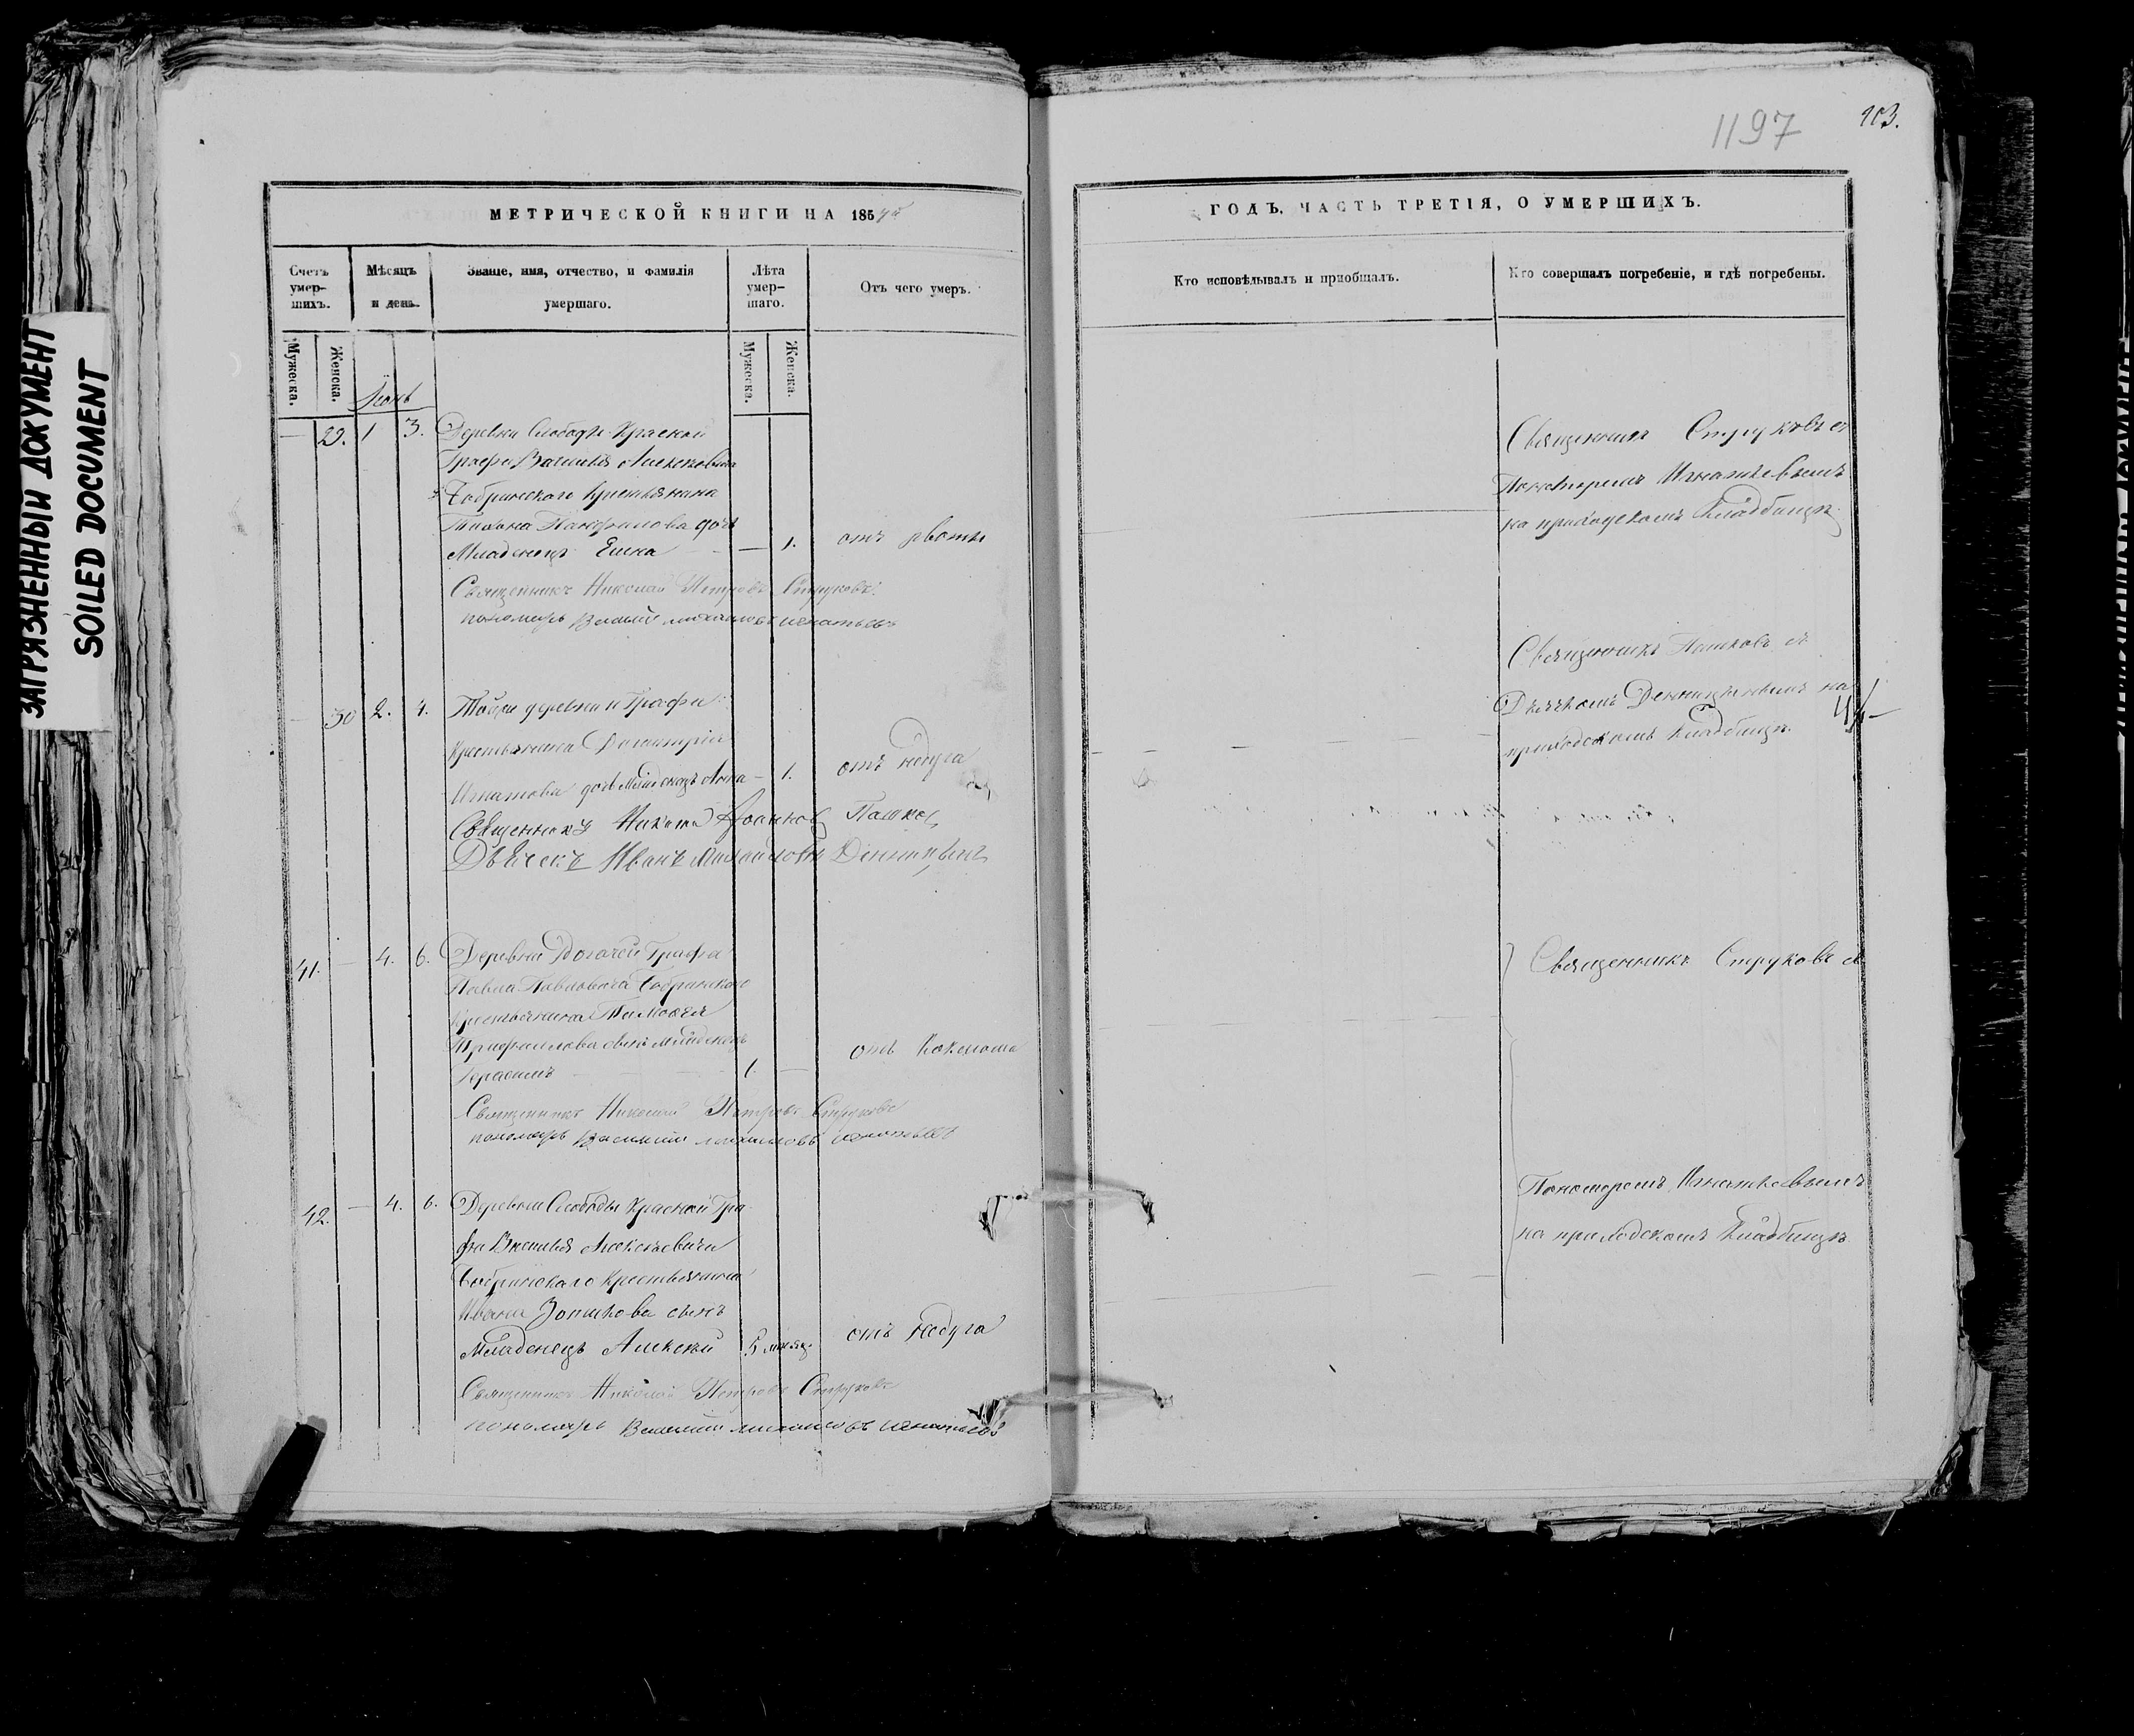 ЗАГРЯЗНЕННЫЙ ДОКУМЕНТ
SOILED DOCUMENT
МЕТРИЧЕСКОЙ КНИГИ НА 185
Счетъ умерших.
Мѣсяцъ и день.
Званіе, имя, отчество, и фамилія умершаго.
Лѣта умершаго.
Отъ чего умеръ.
Мужеска.
Женска.
Мужеска.
Женска.
Іюнь
29. 1 3. Деревни Слободы Красной
Графа Василія Алексѣевича
Бобринскаго крестьянина
дочь
Младенецъ 1. отъ рвоты
Священникъ Николай Петровъ Струковъ
пономарь Василий михаиловъ игнатьевъ
30 2. 4. Той же деревни и Графа
Крестьянина Димитрія
Игнатова дочь Младенецъ Анна 1. отъ недуга
Священникъ Никита Іоанновъ Пашковъ
Дьячекъ Иванъ Михайловъ
41. 4. 6. Деревни Графа
Павла Павловича Бобринскаго
Крестьянина Тимоѳея
сынъ младенецъ
Герасимъ 1. отъ
Священникъ Николай Петровъ Струковъ
пономарь Василий михаиловъ игнатьевъ
42. 4. 6. Деревни Слободы Красной Гра
фа Василія Алексѣевича
Бобринскаго крестьянина
Ивана сынъ
Младенецъ Алексѣй 5 отъ недуга
Священникъ Николай Петровъ Струковъ
пономарь Василий михаиловъ игнатьевъ
1197
103.
ГОДЪ, ЧАСТЬ ТРЕТІЯ, О УМЕРШИХЪ.
Кто исповѣдывалъ и пріобщалъ.
Кто совершалъ погребеніе, и гдѣ погребены.
Священникъ Струковъ съ
Пономаремъ Игнатьевымъ
на приходскомъ кладбищѣ.
Священникъ Пашковъ съ
Дьячкомъ на
приходскомъ кладбищѣ.
Священникъ Струковъ съ
Пономаремъ Игнатьевымъ
на приходскомъ кладбищѣ